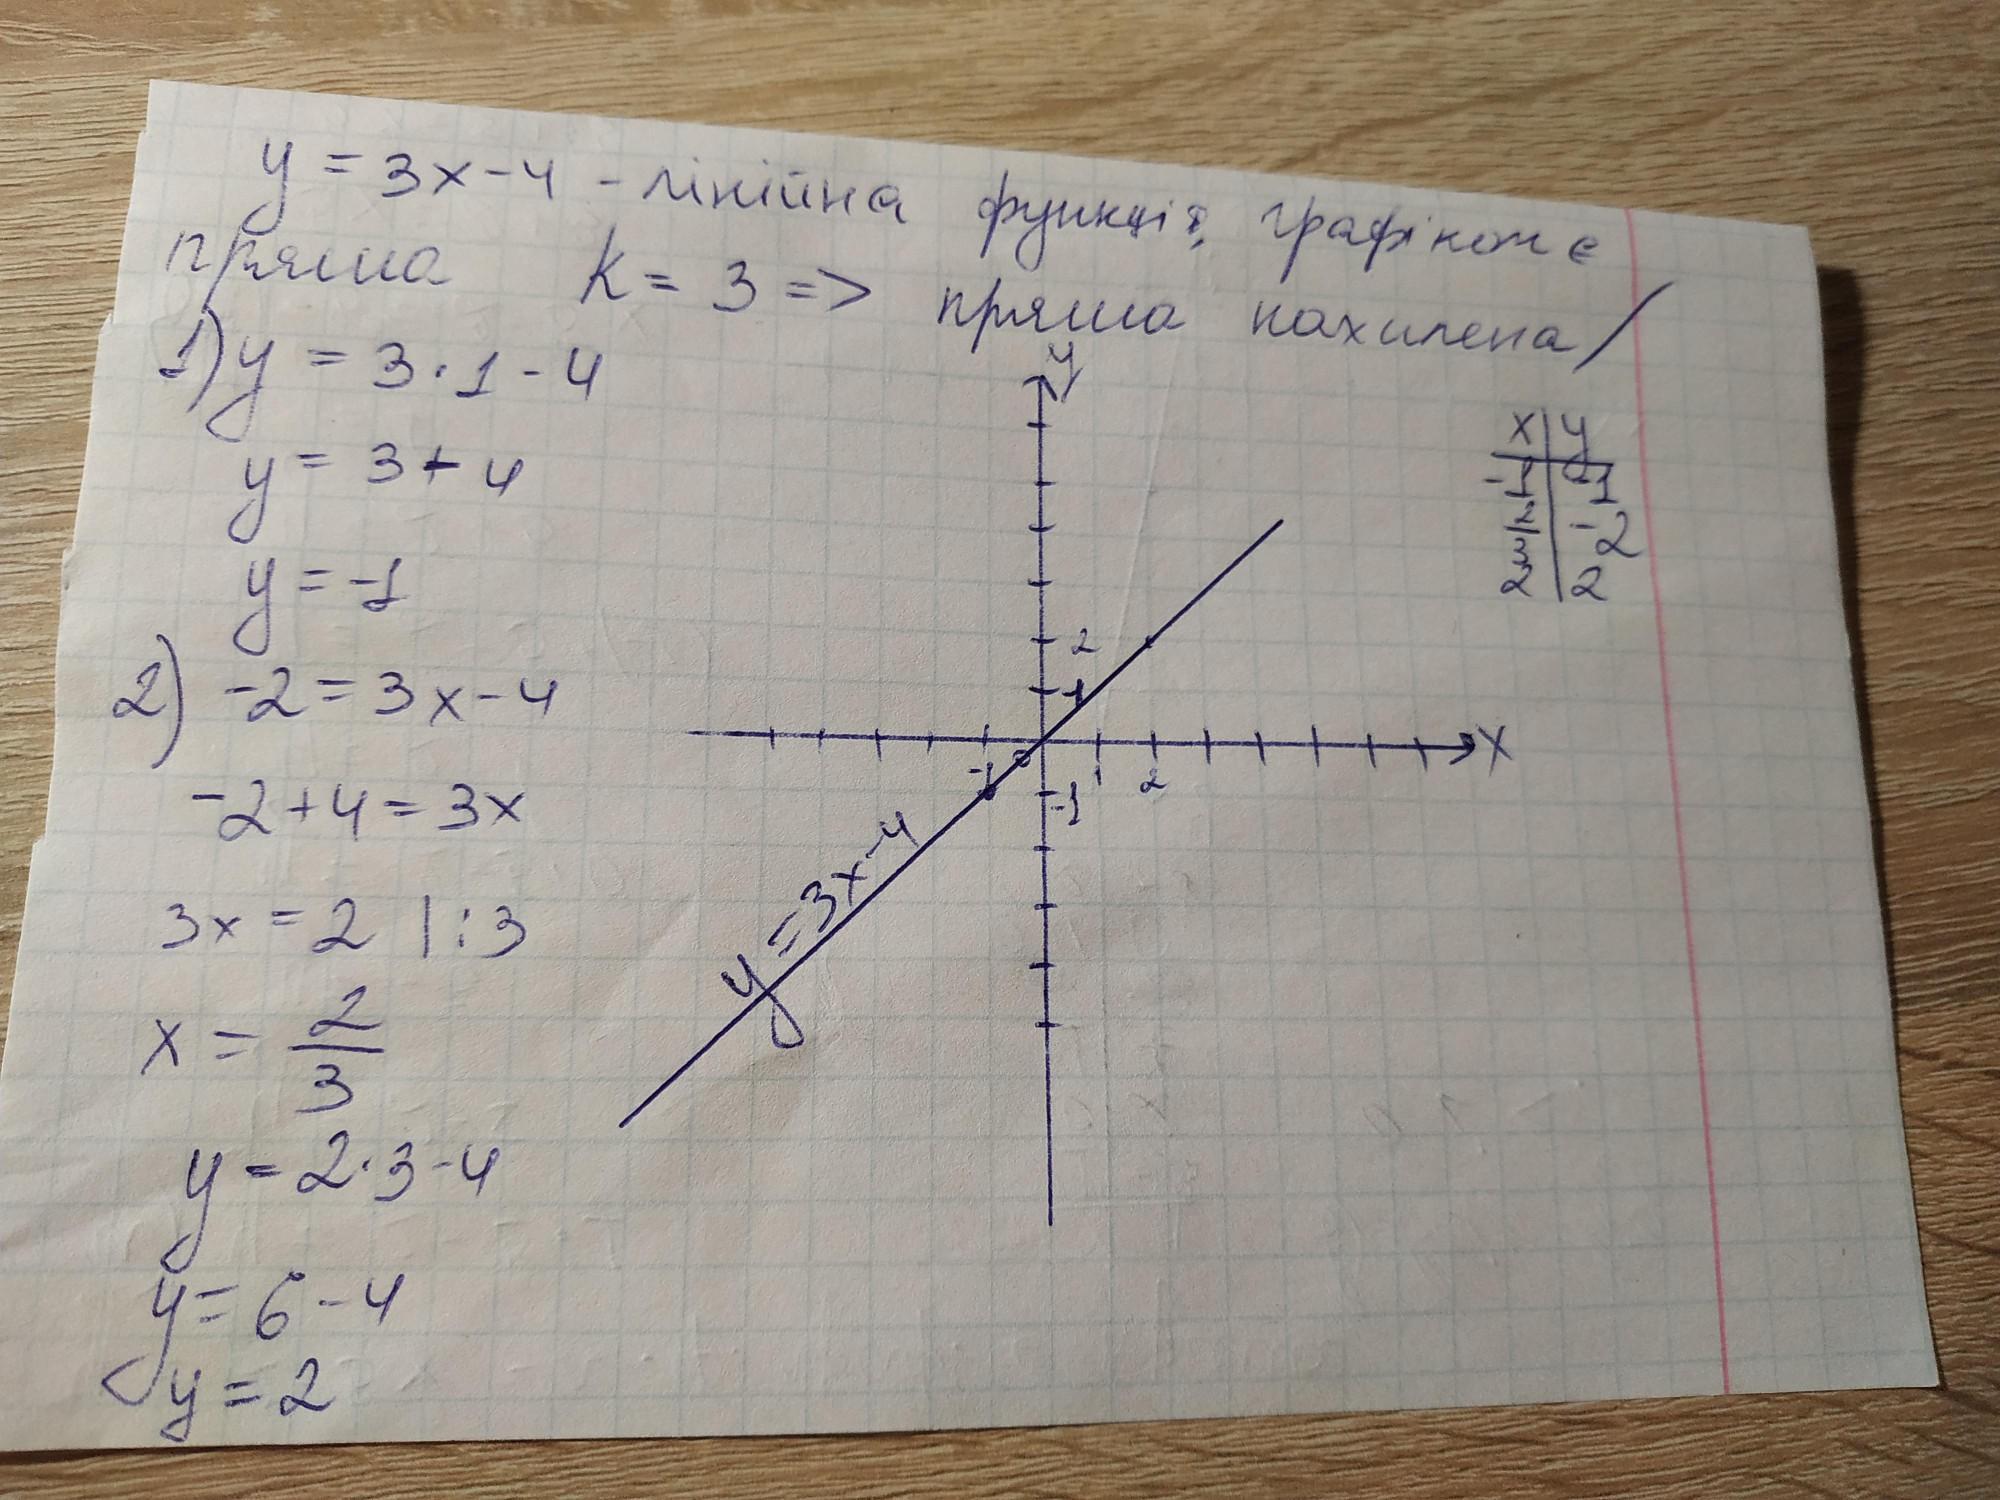 y = 3x - 4 - лінійна функція, графіком є
пряма k = 3 => пряма нахилена /
1) y = 3 · 1 - 4
y = 3 - 4
y = -1
2) -2 = 3x - 4
-2 + 4 = 3x
3x = 2 | : 3
x = 2/3
y = 2 · 3 - 4
y = 6 - 4
y = 2
y
x y
-1 -1
2/3 -2
2 2
2
1
x
-1 0 1 2
-1
y = 3x - 4